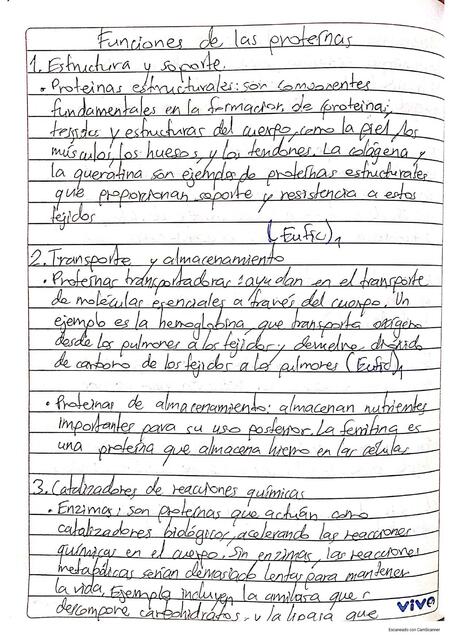 Funciones de las proteínas
1. Estructura y soporte.
• Proteinas estructurales: son componentes
fundamentales en la formacion, de proteina,
tejidos y estructuras del cuerpo, como la piel, los
músculos, los huesos, y los tendones. La colágena y
la queratina son ejemplos de proteínas estructurales
que proporcionan soporte y resistencia a estos
tejidos
(Eufic)1
2. Transporte y almacenamiento
• Proteínas transportadoras: ayudan en el transporte
de moléculas esenciales a través del cuerpo. Un
ejemplo es la hemoglobina, que transporta oxígeno
desde los pulmones a los tejidos y devuelve dióxido
de carbono de los tejidos a los pulmones (Eufic)1
• Proteinas de almacenamiento: almacenan nutrientes
importantes para su uso posterior. La ferritina es
una proteína que almacena hierro en las células
3. Catalizadores de reacciones químicas
• Enzimas: son proteínas que actúan como
catalizadores biológicos, acelerando las reacciones
químicas en el cuerpo. Sin enzimas, las reacciones
metabólicas serían demasiado lentas para mantener
la vida. Ejemplo incluyen la amilasa que
descompone carbohidratos, y la lipasa que
vivo
Escaneado con CamScanner